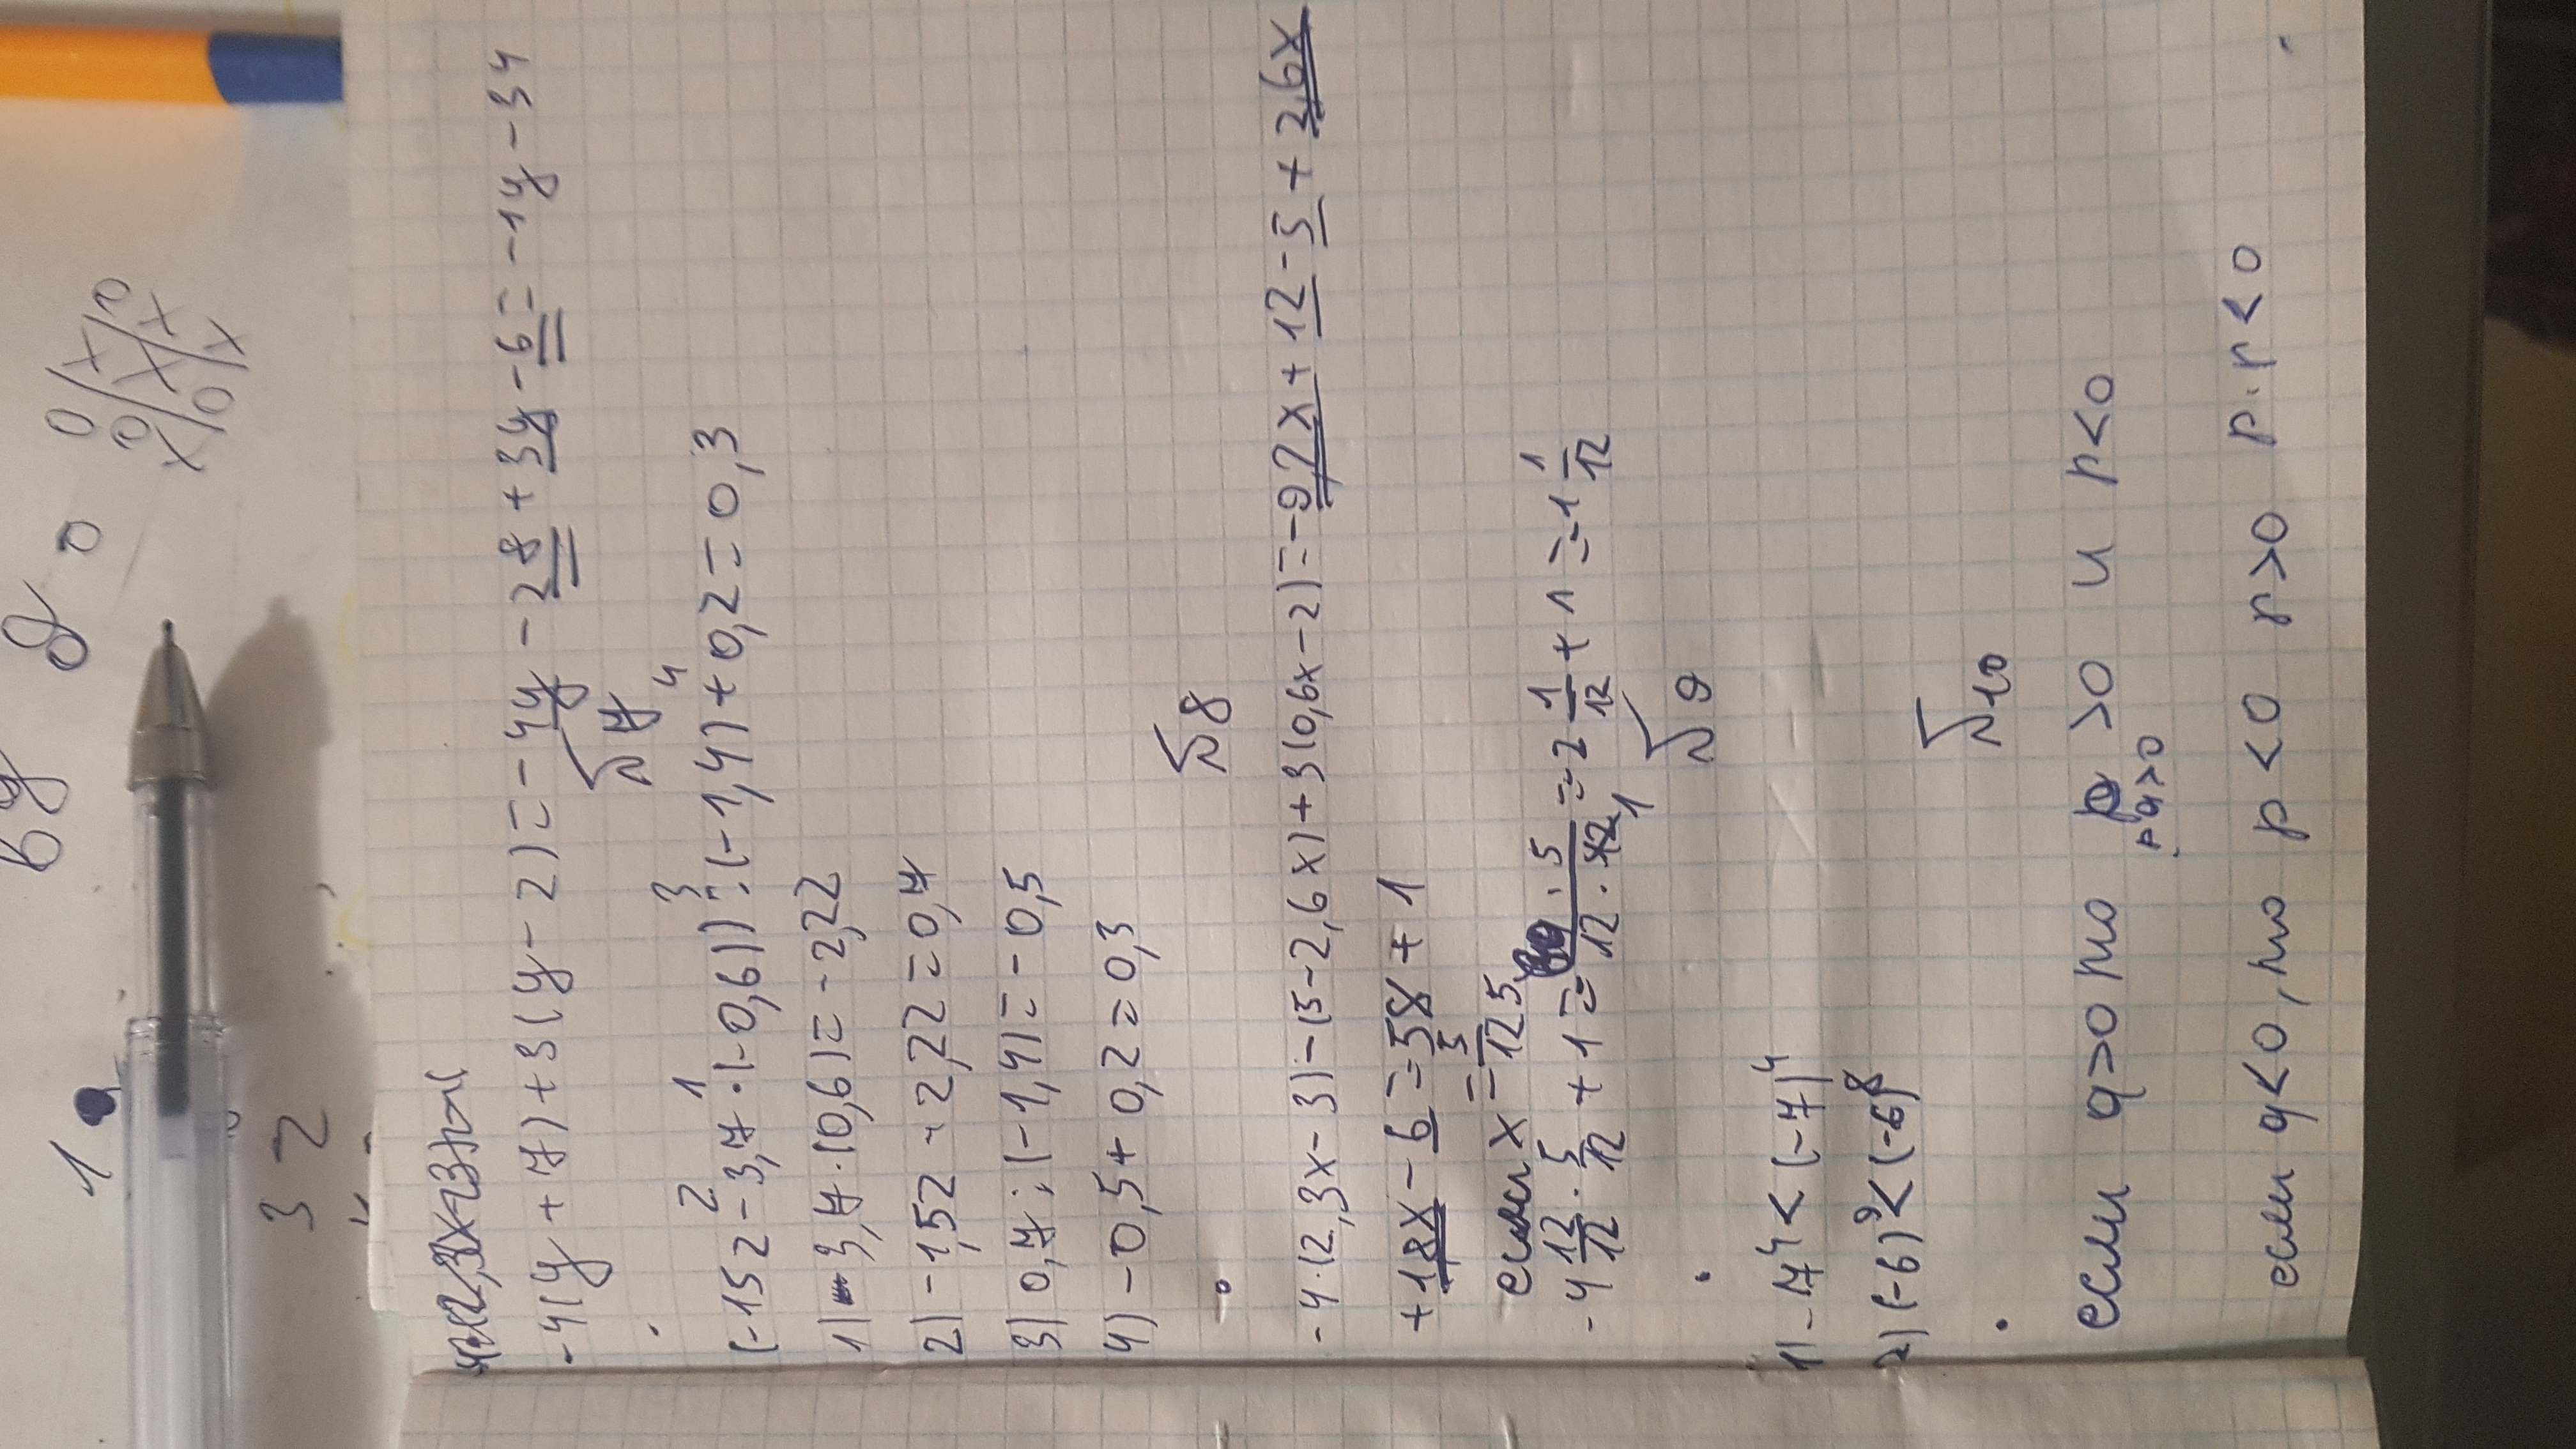 -4(y+7)+3(y-2)=-4y-28+3y-6=-1y-34
√7
(-152-3,7·(-0,6)):(-1,4)+0,2=0,3
1) 3,7·(0,6)=-2,22
2) -1,52-2,22=0,7
3) 0,7:(-1,4)=-0,5
4) -0,5+0,2=0,3
√8
-4·(2,3x-3)-(5-2,6x)+3(0,6x-2)=-9,2x+12-5+2,6x
+1,8x-6=58+1
если x=5/12
-4 12/12·5/12+1= ·5/12·12=-2 1/12+1=-1 1/12
√9
1) -7⁴<(-7)⁴
2) (-6)⁹<(-6)⁸
√10
если q>0 то p>0 и p<0
если q<0, то p<0 p>0 p·p<0
1
3 2